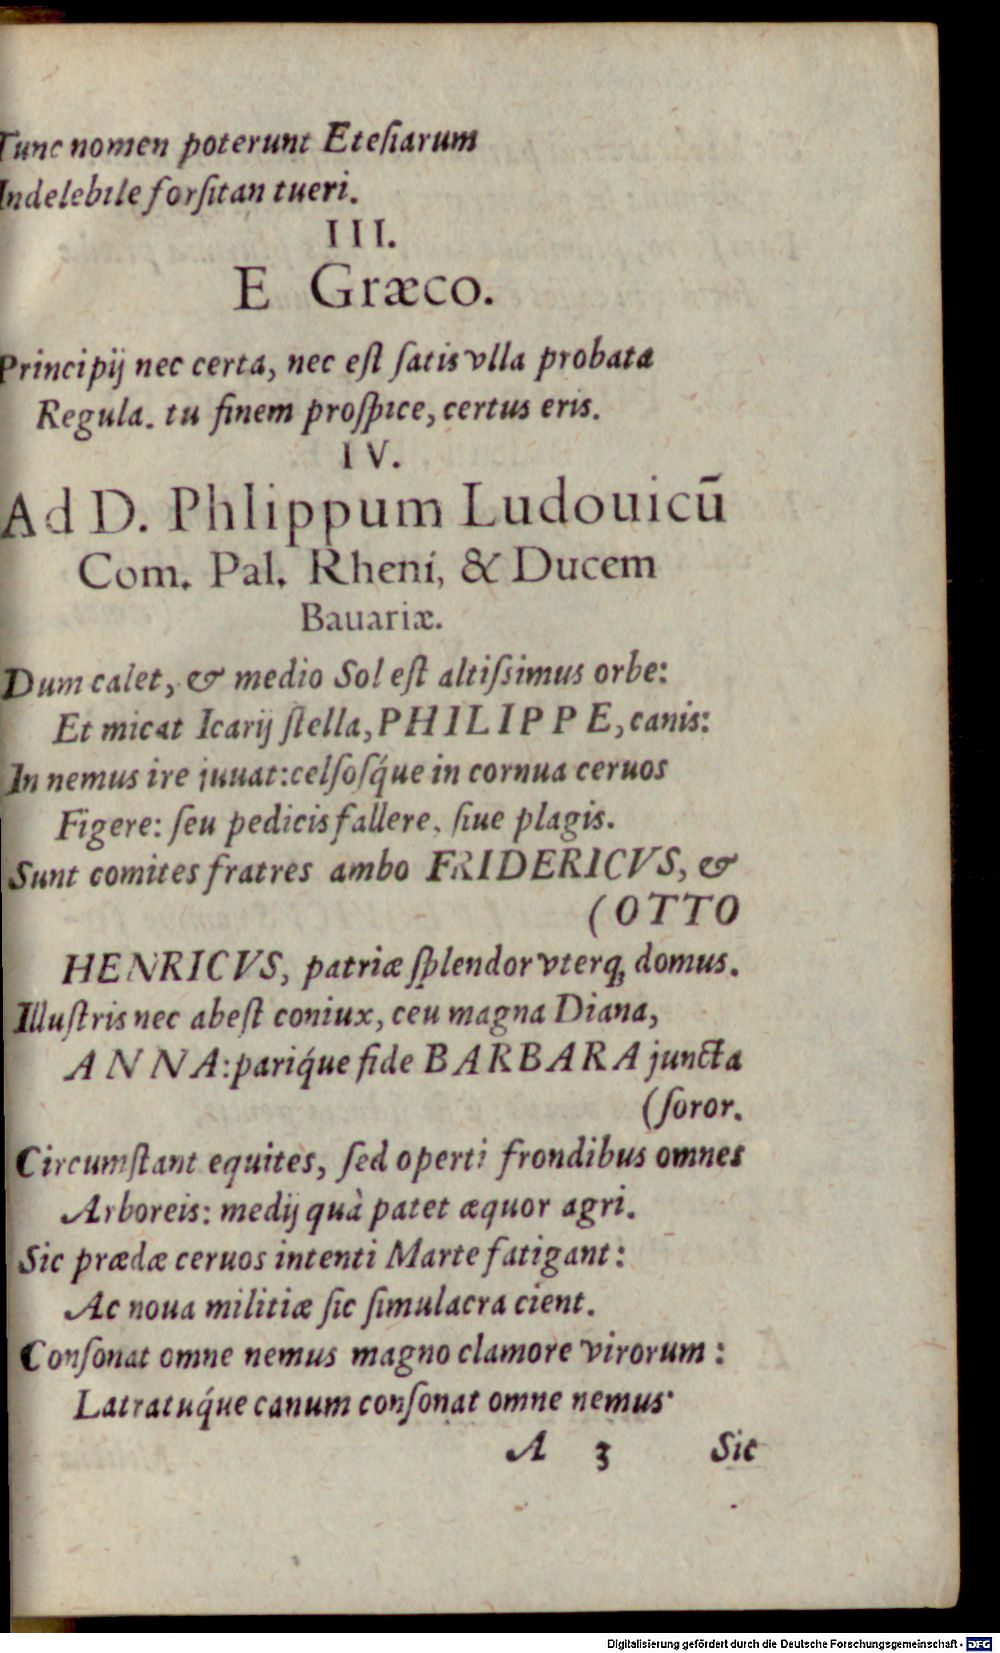 Tunc nomen poterunt Etesiarum
Indelebile forſitan tueri.
III.
E Græco.
Principij nec certa, nec eſt ſatis vlla probata
Regula. tu finem proſpice, certus eris.
IV.
Ad D. Phlippum Ludouicū
Com. Pal. Rheni, & Ducem
Bauariæ.
Dum calet, & medio Sol eſt altiſsimus orbe:
Et micat Icarij ſtella, PHILIPPE, canis:
In nemus ire juuat: celſoſq́ue in cornua ceruos
Figere: ſeu pedicis fallere, ſiue plagis.
Sunt comites fratres ambo FRIDERICVS, &
(OTTO
HENRICVS, patriæ ſplendor vterq; domus.
Illuſtris nec abeſt coniux, ceu magna Diana,
ANNA: pariq́ue fide BARBARA juncta
(ſoror.
Circumſtant equites, ſed operti frondibus omnes
Arboreis: medij quà patet æquor agri.
Sic prædæ ceruos intenti Marte fatigant:
Ac noua militiæ ſic ſimulacra cient.
Conſonat omne nemus magno clamore virorum:
Latratuq́ue canum conſonat omne nemus.
A 3 Sic
Digitalisierung gefördert durch die Deutsche Forschungsgemeinschaft - DFG